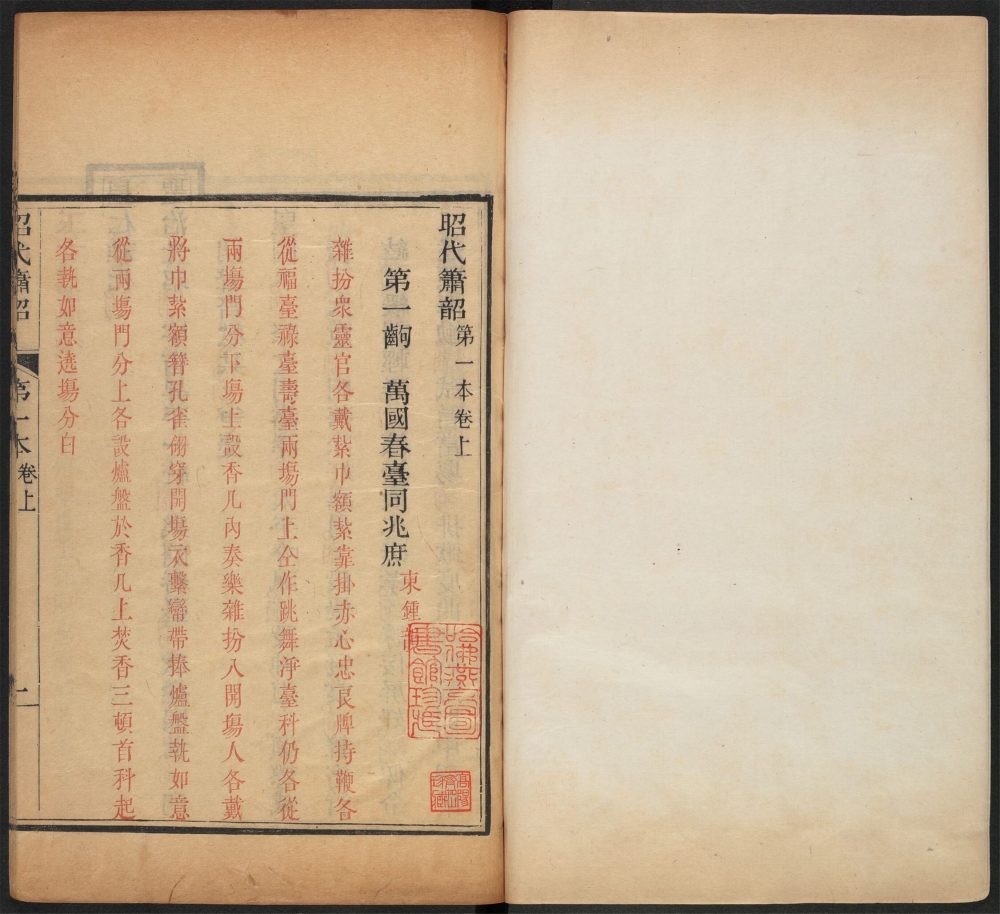 昭代簫韶 第一本卷上
第一齣 萬國春臺同兆庶 東鍾韻
雜扮衆靈官各戴紥巾額紥靠掛赤心忠良牌持鞭各
從福臺祿臺壽臺兩塲門上仝作跳舞淨臺科仍各從
兩塲門分下塲上設香几內奏樂雜扮八開塲人各戴
將巾紥額簪孔雀翎穿開塲衣繫鸞帶捧爐盤執如意
從兩塲門分上各設爐盤於香几上焚香三頓首科起
各執如意遶塲分白
昭代簫韶 第一本卷上 一
哈佛燕京圖書館珍藏